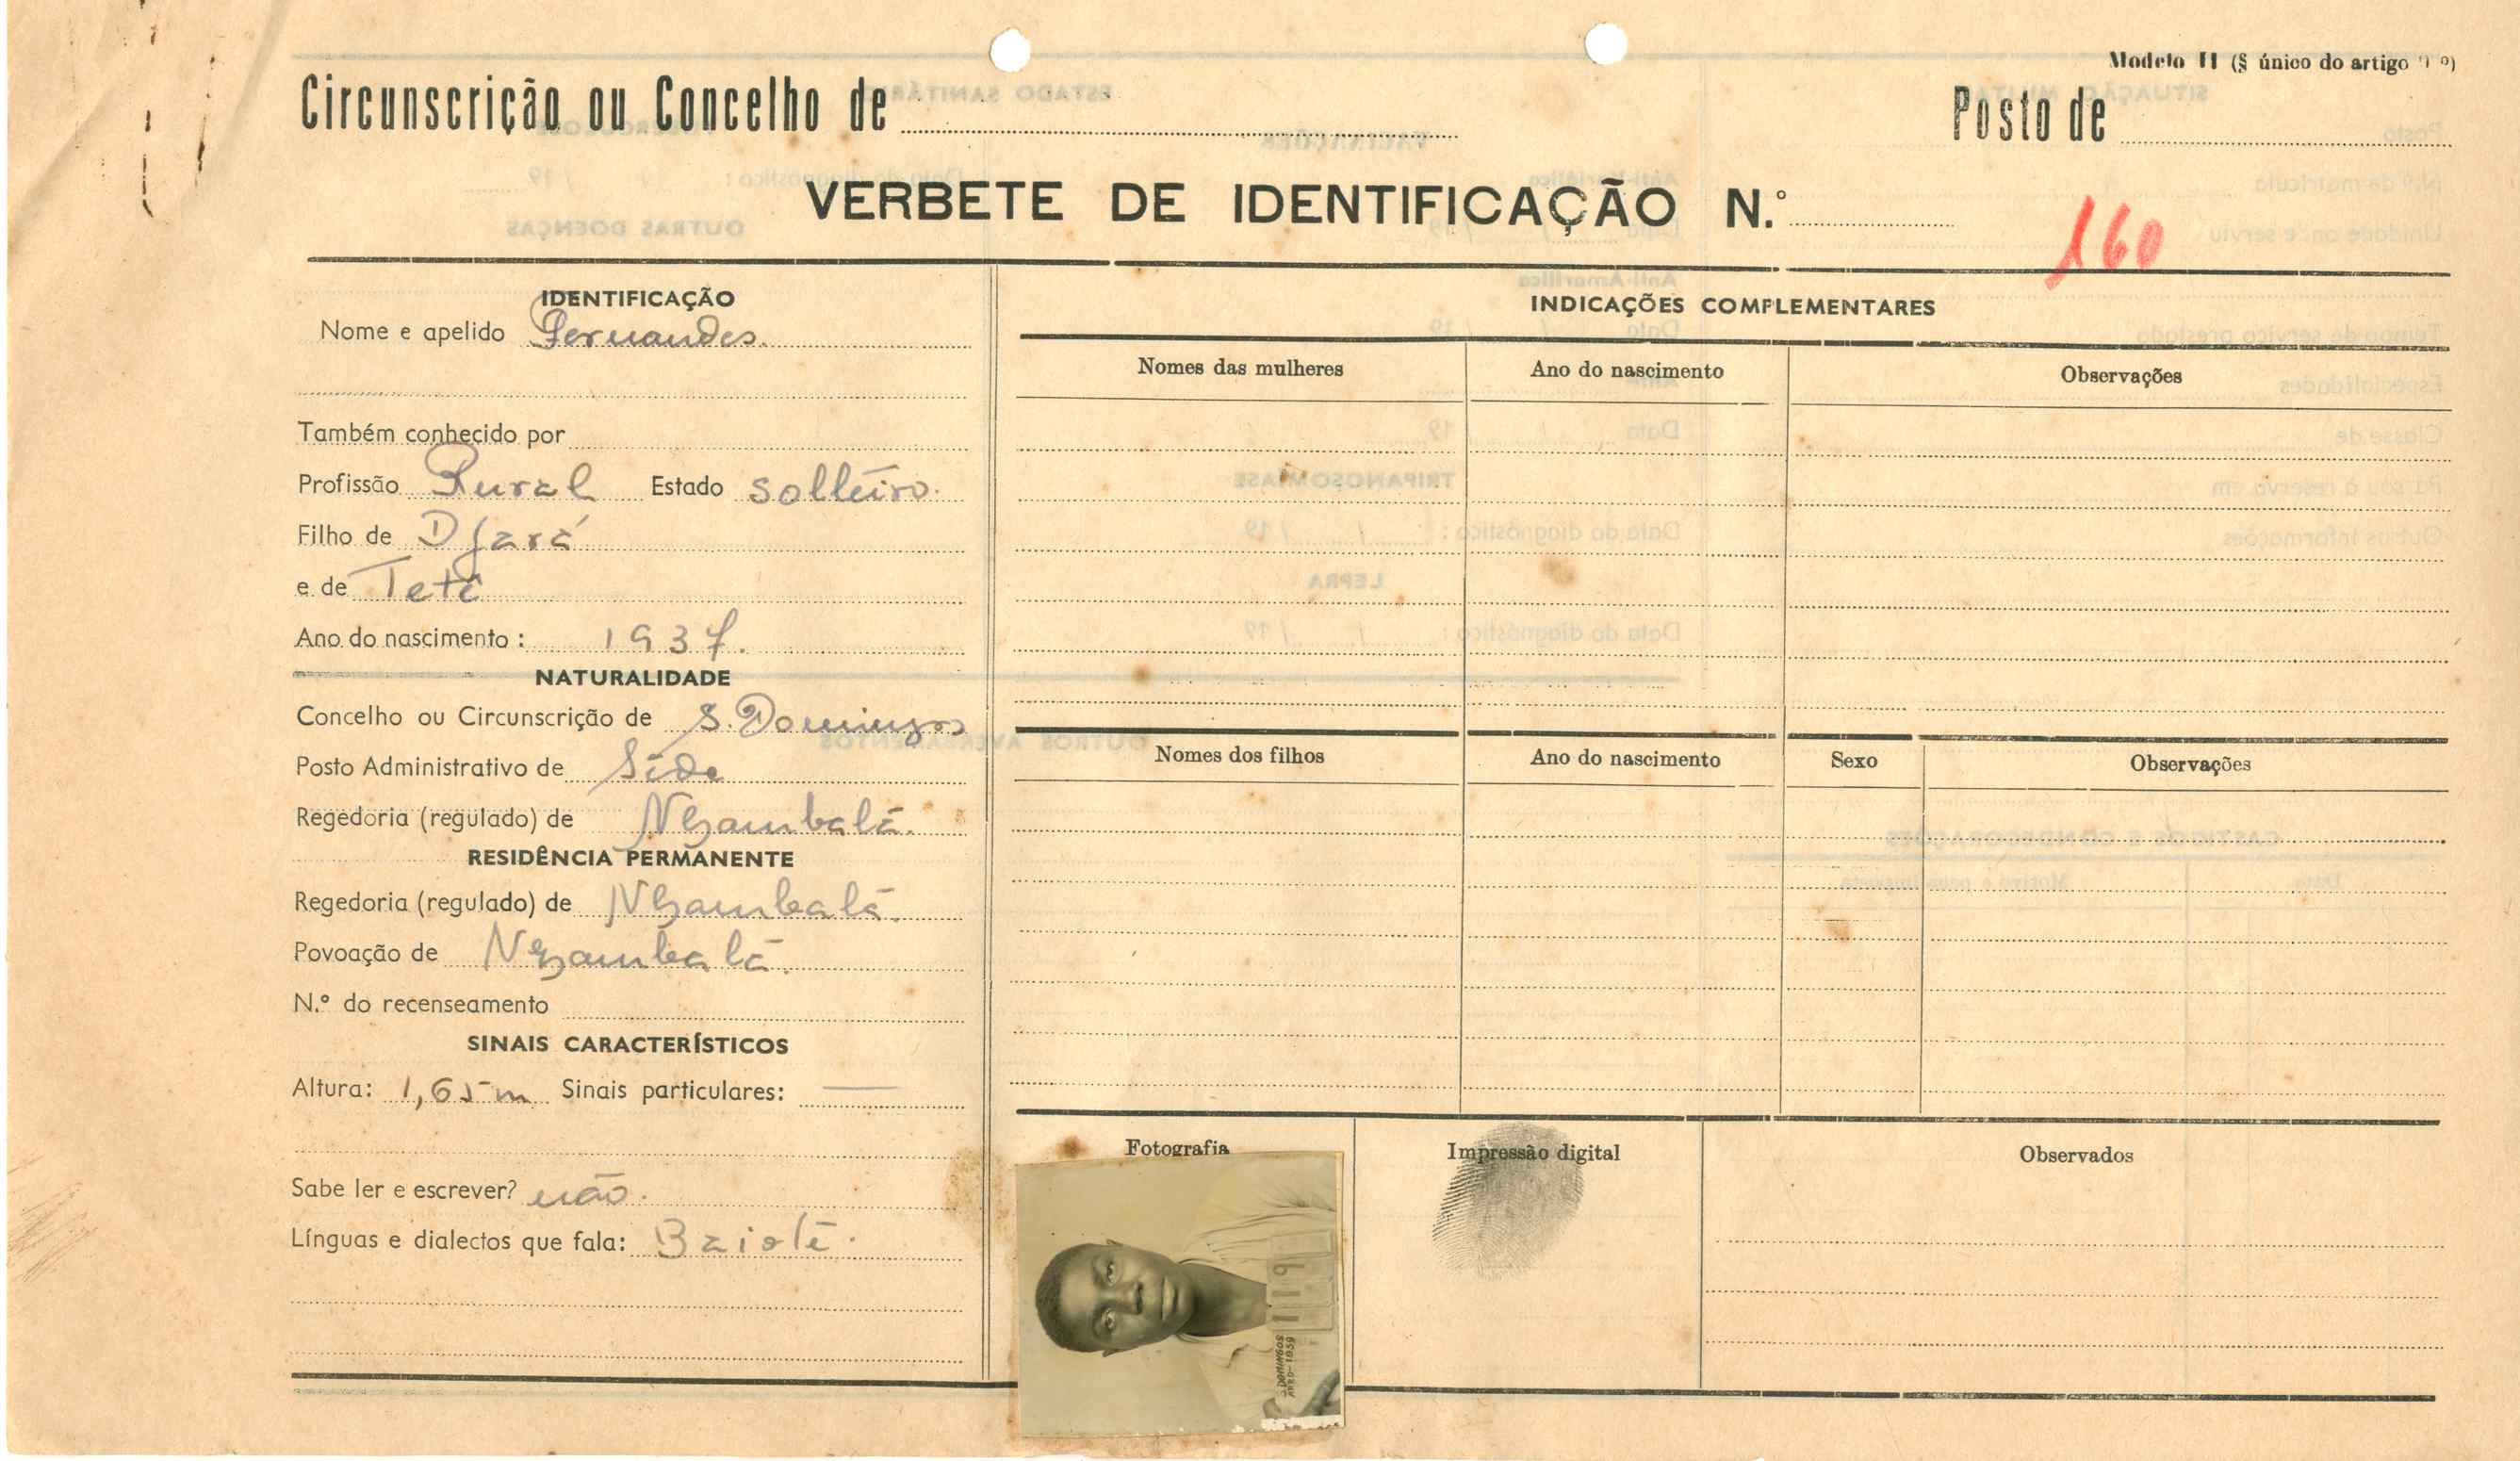 Modelo II (§ único do artigo
Circunscrição ou Concelho de
Posto de
VERBETE DE IDENTIFICAÇÃO N.º
160
IDENTIFICAÇÃO
Nome e apelido Fernandes.
Também conhecido por
Profissão Rural Estado solteiro.
Filho de Djará
e de Teté
Ano do nascimento: 1937.
NATURALIDADE
Concelho ou Circunscrição de S. Domingos
Posto Administrativo de Sede
Regedoria (regulado) de Nhambalã.
RESIDÊNCIA PERMANENTE
Regedoria (regulado) de Nhambalã.
Povoação de Nhambalã.
N.º do recenseamento
SINAIS CARACTERÍSTICOS
Altura: 1,65 m Sinais particulares: —
Sabe ler e escrever? não.
Línguas e dialectos que fala: Baiote.
INDICAÇÕES COMPLEMENTARES
Nomes das mulheres Ano do nascimento Observações
Nomes dos filhos Ano do nascimento Sexo Observações
Fotografia Impressão digital Observados
DOMINGOS
1959